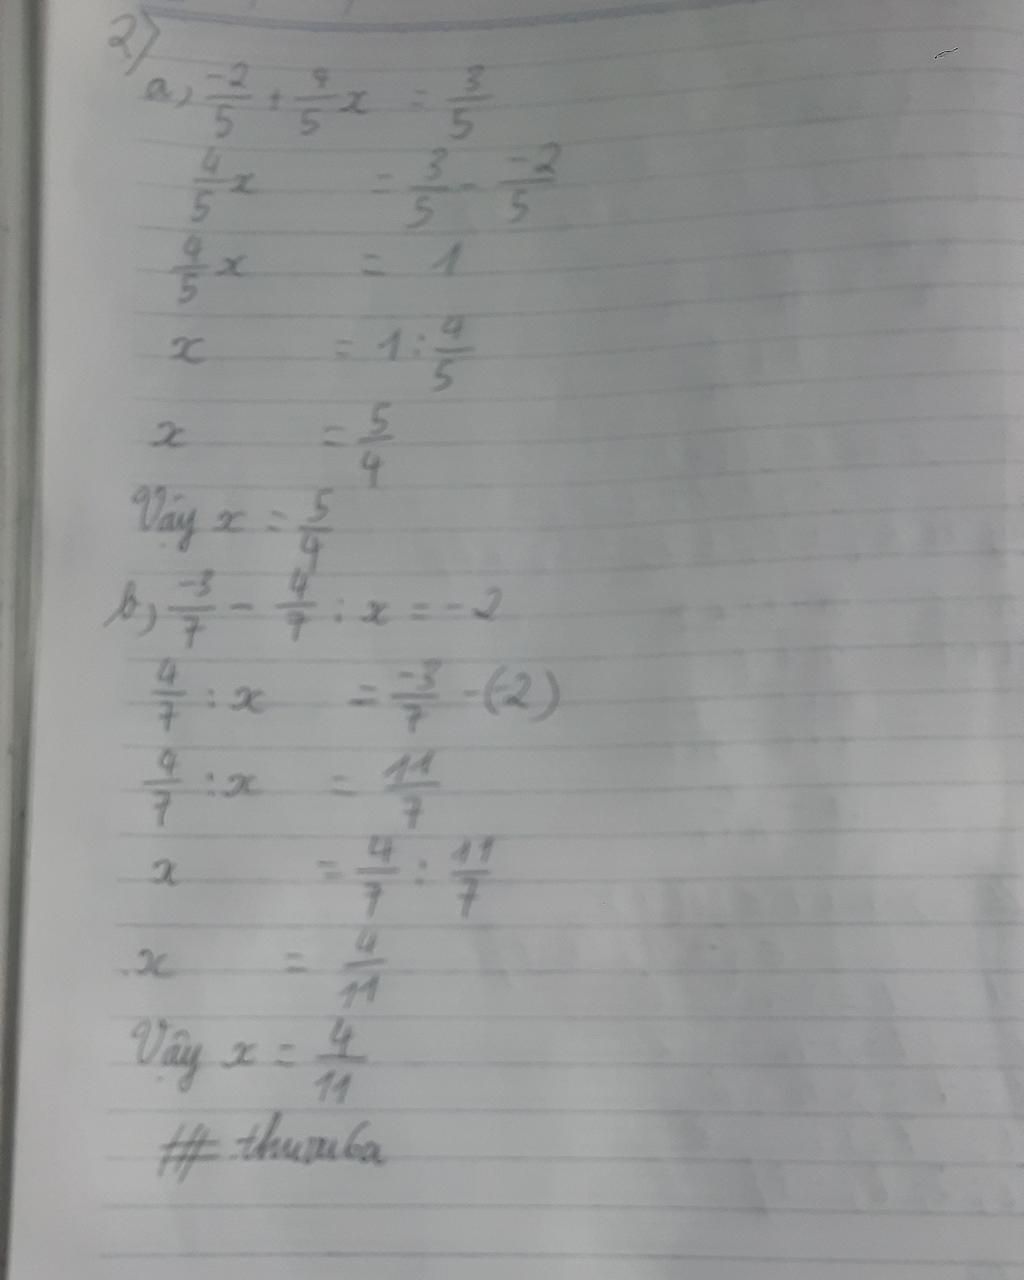 2)
a, -2/5 + 4/5 x = 3/5
4/5 x = 3/5 - -2/5
4/5 x = 1
x = 1 : 4/5
x = 5/4
Vậy x = 5/4
b, -3/7 - 4/7 : x = -2
4/7 : x = -3/7 - (-2)
4/7 : x = 11/7
x = 4/7 : 11/7
x = 4/11
Vậy x = 4/11